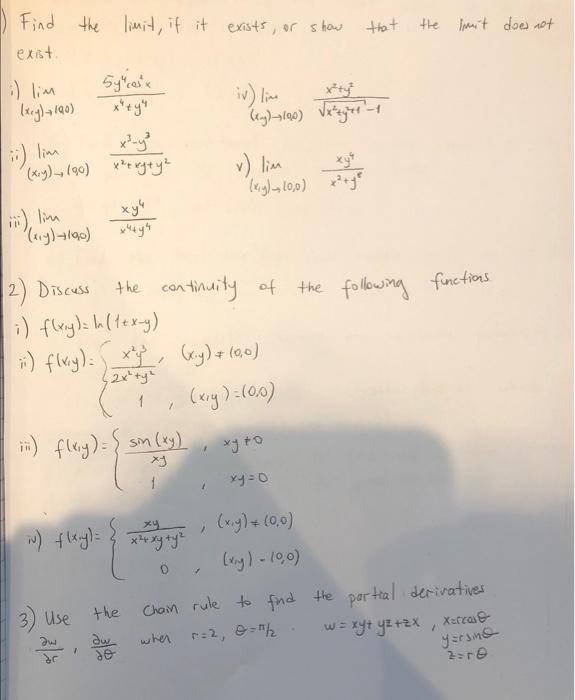 ) Find the limit, if it exists, or show that the limit does not
exist.
i) lim (x,y)→(0,0) 5y⁴cos²x / x⁴+y⁴
iv) lim (x,y)→(0,0) x²+y² / √x²+y²+1 - 1
ii) lim (x,y)→(0,0) x³-y³ / x²+xy+y²
v) lim (x,y)→(0,0) xy⁴ / x²+y⁸
iii) lim (x,y)→(0,0) xy⁴ / x⁴+y⁴
2) Discuss the continuity of the following functions
i) f(x,y)= ln(1+x-y)
ii) f(x,y)= { x²y³ / 2x²+y² , (x,y) ≠ (0,0)
1 , (x,y)=(0,0)
iii) f(x,y)= { sin(xy) / xy , xy≠0
1 , xy=0
iv) f(x,y)= { xy / x²+xy+y² , (x,y)≠(0,0)
0 , (x,y)=(0,0)
3) Use the Chain rule to find the partial derivatives
∂w/∂r , ∂w/∂θ when r=2, θ=π/2 . w= xy+yz+zx , x=rcosθ
y=rsinθ
z=rθ